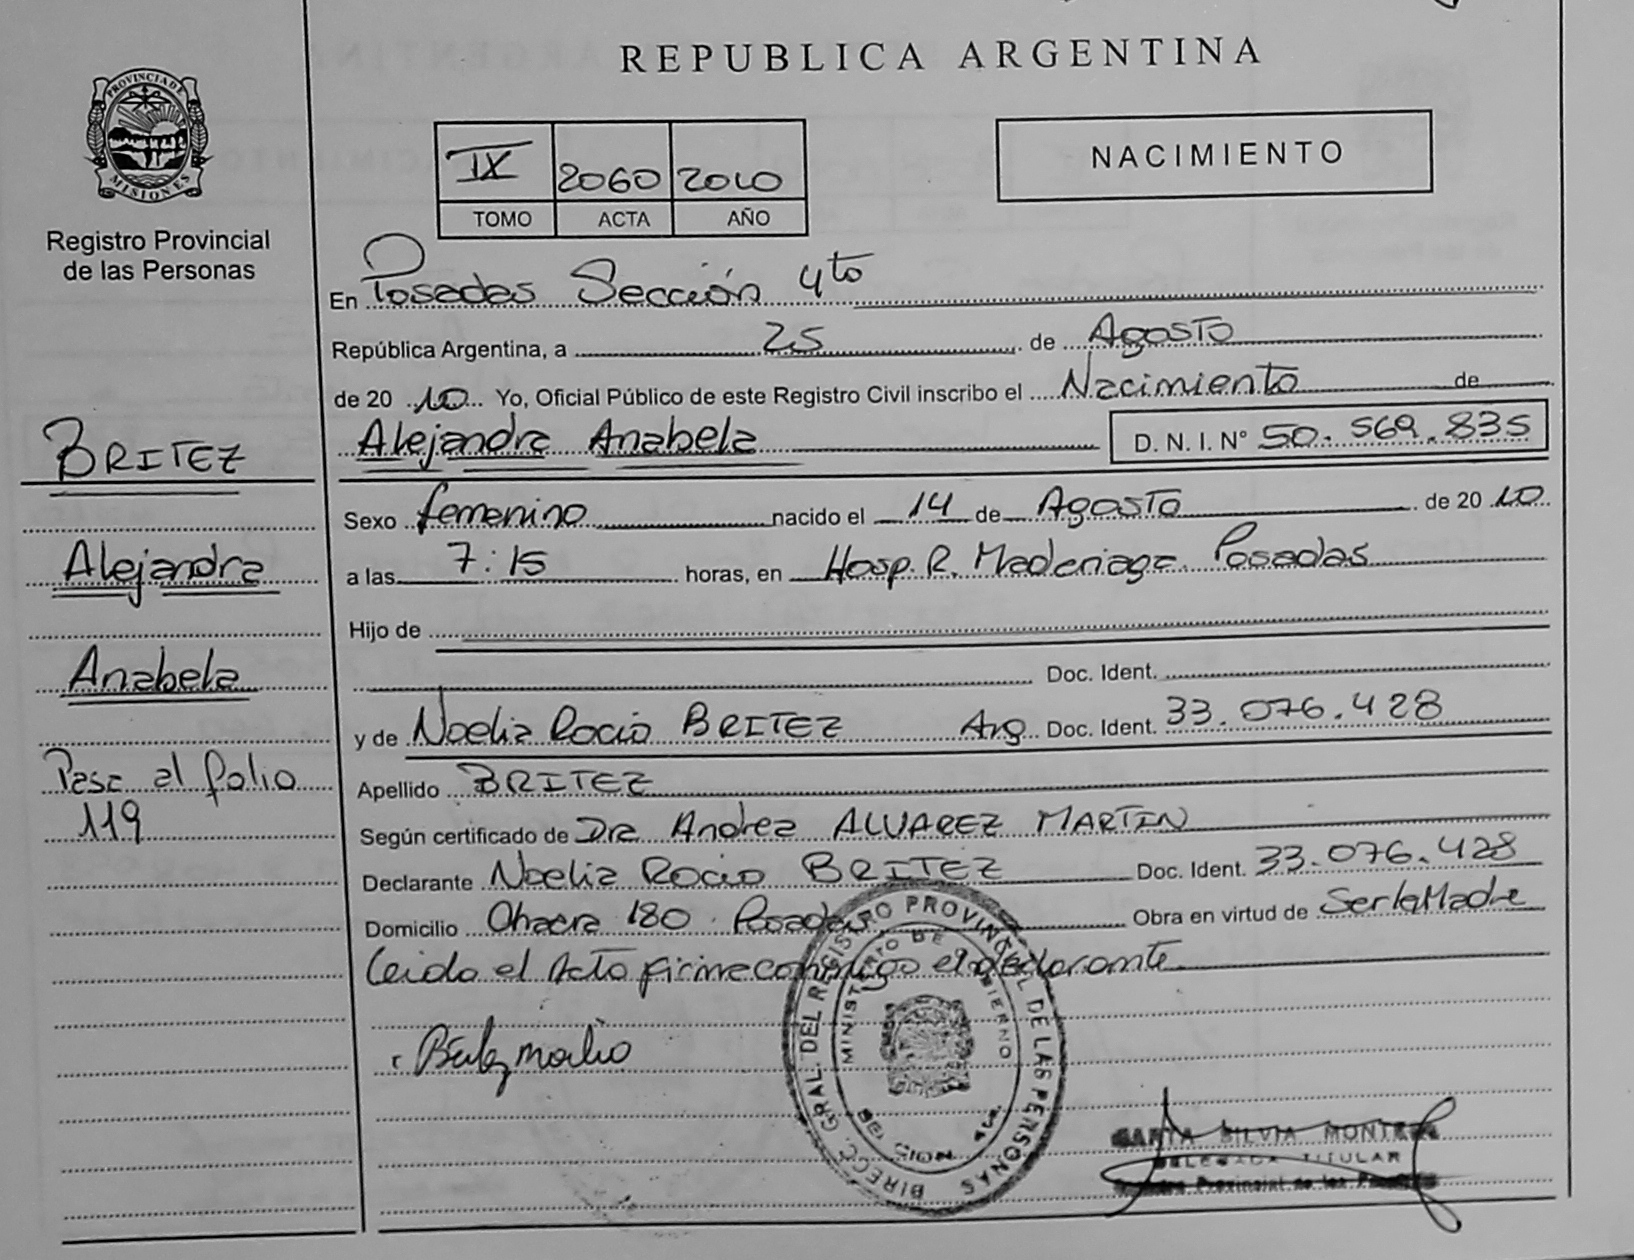 REPUBLICA ARGENTINA
PROVINCIA DE
MISIONES
Registro Provincial
de las Personas
IX 2060 2010
TOMO ACTA AÑO
NACIMIENTO
En Posadas Sección 4to
República Argentina, a 25 de Agosto
de 20 10 Yo, Oficial Público de este Registro Civil inscribo el Nacimiento de
Alejandra Anabela D. N. I. N° 50.569.835
Sexo femenino nacido el 14 de Agosto de 20 10
a las 7:15 horas, en Hosp. R. Maderiaga Posadas
Hijo de
Doc. Ident.
y de Noelia Rocio BRITEZ Arg. Doc. Ident. 33.076.428
Apellido BRITEZ
Según certificado de Dra. Andrea ALVAREZ MARTIN
Declarante Noelia Rocio BRITEZ Doc. Ident. 33.076.428
Domicilio Chacra 180 Posadas Obra en virtud de Ser la Madre
Leido el Acta firma conmigo el declarante
BRITEZ
Alejandra
Anabela
Pasa al folio
119
DIRECC. GRAL. DEL REGISTRO PROVINCIAL DE LAS PERSONAS
MINISTERIO DE GOBIERNO
SILVIA
DELEGADA TITULAR